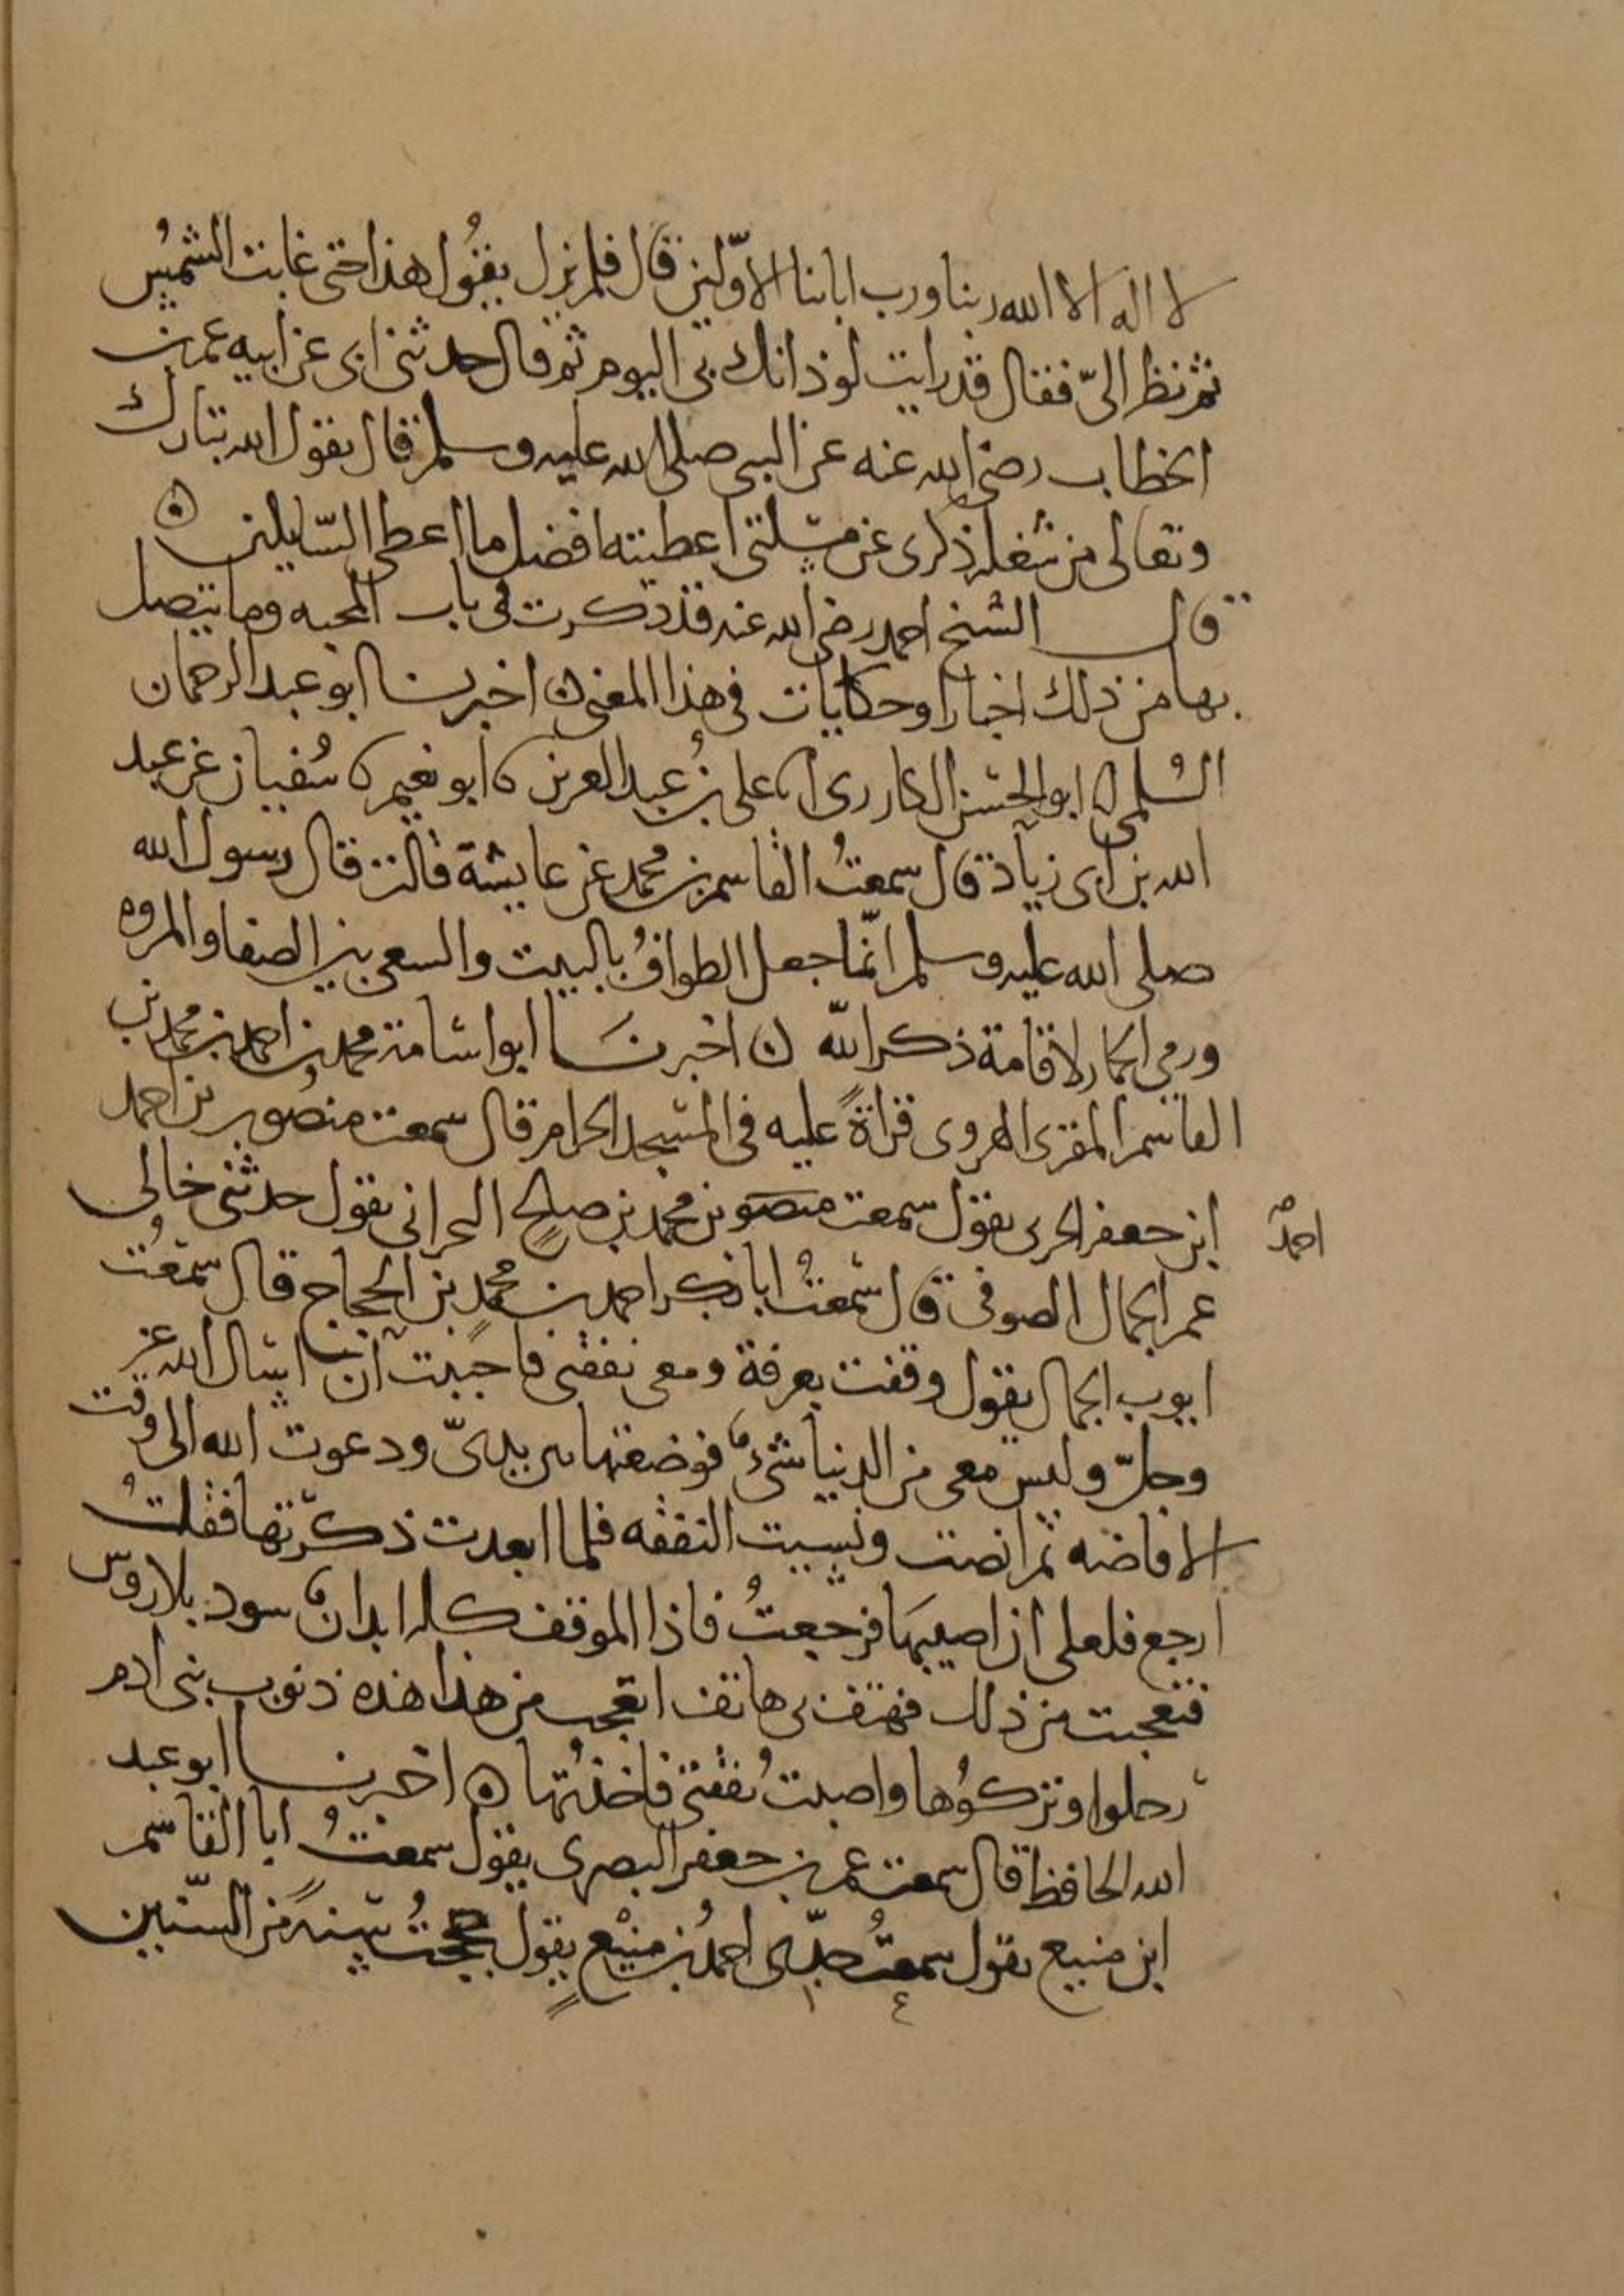 لا اله الا الله ربنا ورب ابائنا الاولين قال فلم يزل يقول هذا حتى غابت الشمس
ثم نظر الىّ فقال قد رايت لوذانك بى اليوم ثم قال حدثنى ابى عن ابيه عمر بن
الخطاب رضى الله عنه عن النبى صلى الله عليه وسلم قال يقول الله تبارك
وتعالى من شغله ذكرى عن مسلتى اعطيته افضل ما اعطى السّايلين ه
قال الشيخ احمد رضى الله عنه قد ذكرت فى باب المحبه وما يتصل
بها من ذلك اخبارا وحكايات فى هذا المعنى ه اخبرنا ابو عبد الرحمان
السُلمى انا ابو الحسن الكارزى انا على بن عبد العزيز نا ابو نعيم نا سُفيان عن عبد
الله بن ابى زياد قال سمعتُ القاسم بن محمد عن عايشة قالت قال رسول الله
صلى الله عليه وسلم انّما جعل الطوافُ بالبيت والسعى بين الصفا والمروه
ورمى الجمار لاقامة ذكر الله ه اخبرنا ابو اسامة محمد بن احمد بن محمد بن
القاسم المقرى الهروى قراةً عليه فى المسجد الحرام قال سمعت منصور بن احمد
ابن جعفر الحربى يقول سمعت منصور بن محمد بن صالح البحرانى يقول حدثنى خالى
احمد
عمر الجمال الصوفى قال سمعتُ ابا بكر احمد بن محمد بن الحجاج قال سمعتُ
ايوب الجمال يقول وقفت بعرفة ومعى نفقتى فاحببت ان اسال الله عز
وجلّ وليس معى من الدنيا شىء فوضعتها بين يدىّ ودعوت الله الى وقت
الافاضه ثم افضت ونسيت النفقه فلما ابعدت ذكرتها فقلتُ
ارجع فلعلى ان اصيبها فرجعتُ فاذا الموقف كله ابدان سود بلا روس
فتعجبت من ذلك فهتف بى هاتف اتعجب من هذا هذه ذنوب بنى ادم
رحلوا وتركوُها واصبت نفقتى فاخذتُها ه اخبرنا ابو عبد
الله الحافظ قال سمعت عمر بن جعفر البصرى يقول سمعتُ ابا القاسم
ابن منيع يقول سمعتُ جدّى احمد بن منيع يقول حججتُ سنةً من السنين